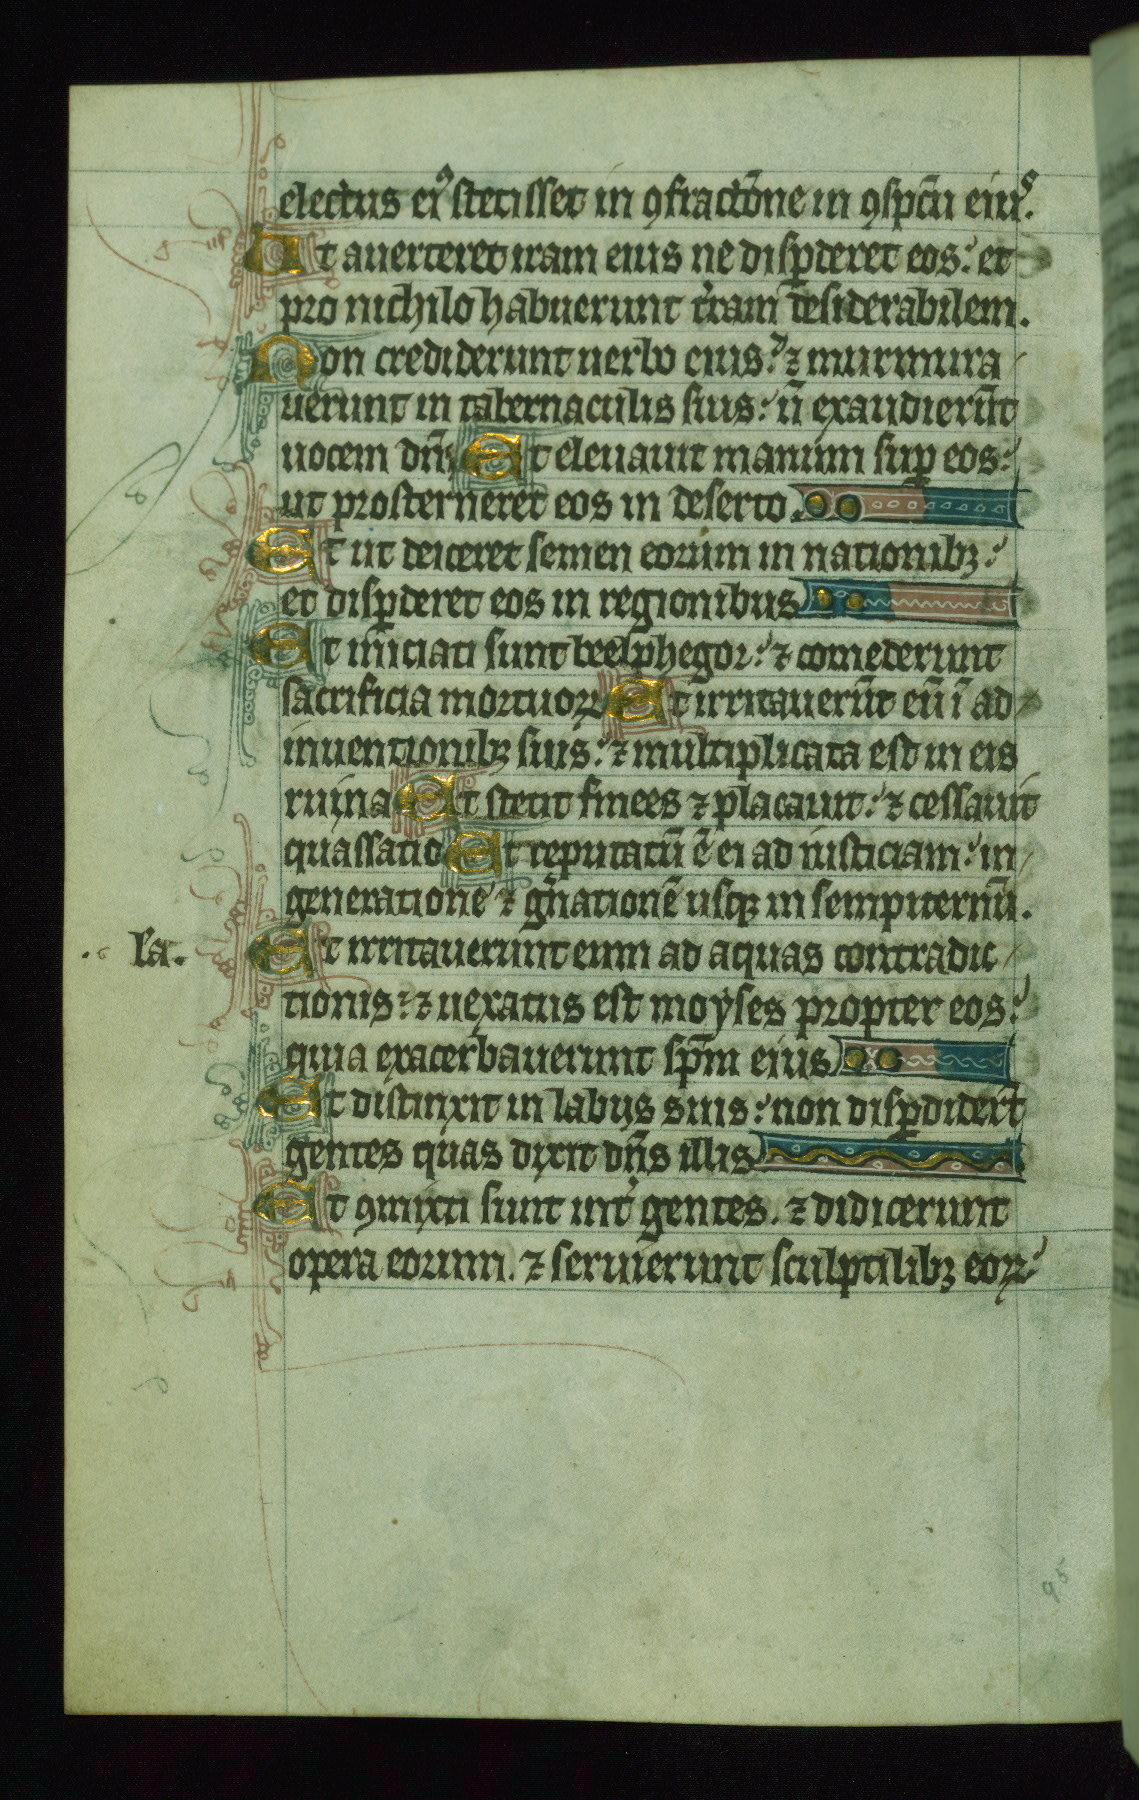 electus eiꝰ stetisset in ꝯfractōne in ꝯspcū eiuˢ.
Ut auerteret iram eius ne disꝑderet eos: et
pro nichilo habuerunt t̓ram desiderabilem.
Non crediderunt uerbo eius: ⁊ murmura
uerunt in tabernaculis suis: ñ exaudierūt
uocem dn̄i Et eleuauit manum suꝑ eos:
ut prosterneret eos in deserto.
Et ut deiceret semen eorum in nationibꝫ:
et disꝑderet eos in regionibus
Et iniciati sunt beelphegor: ⁊ comederunt
sacrificia mortuoꝝ Et irritauerūt eū ī ad
inuentionibꝫ suis: ⁊ multiplicata est in eis
ruina Et stetit finees ⁊ placauit: ⁊ cessauit
quassatio Et reputatū ē ei ad iusticiam: in
generatione ⁊ gn̄ationē usqꝫ in sempiternū.
Ia. Et irritauerunt eum ad aquas contradic
tionis: ⁊ uexatus est moyses propter eos:
quia exacerbauerunt sp̄m eius
Et distinxit in labijs suis: non disꝑdider̄t
gentes quas dixit dn̄s illis
Et ꝯmixti sunt int̓ gentes. ⁊ didicerunt
opera eorum. ⁊ seruierunt sculptilibꝫ eoꝝ
95